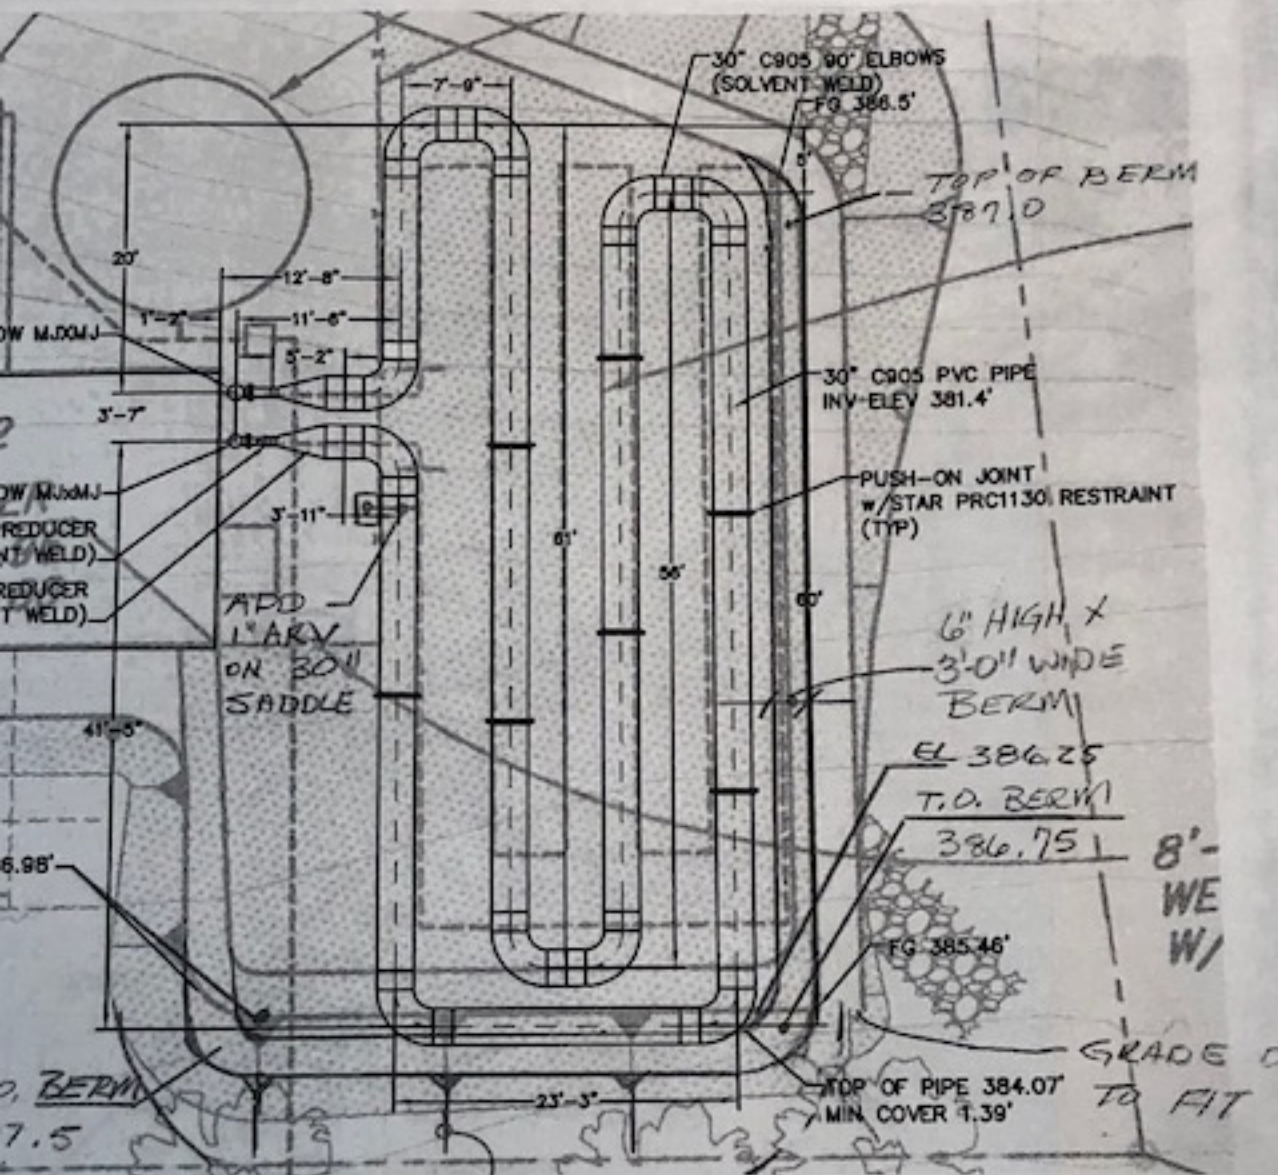 30" C905 90° ELBOWS
(SOLVENT WELD)
FG 386.5'
7'-9"
5'
TOP OF BERM
387.0
20'
12'-8"
1'-2"
11'-6"
OW MJXMJ
5'-2"
30" C905 PVC PIPE
INV ELEV 381.4'
3'-7"
PUSH-ON JOINT
w/STAR PRC1130 RESTRAINT
(TYP)
OW MJxMJ
REDUCER
NT WELD)
3'-11"
61'
56'
60'
REDUCER
T WELD)
ADD
1" ARV
ON 30"
SADDLE
6" HIGH X
3'-0" WIDE
BERM
41'-5"
EL 386.25
T.O. BERM
386.75
8'-
WE
W/
6.98'
FG 385.46'
GRADE
TO FIT
O. BERM
7.5
TOP OF PIPE 384.07'
MIN COVER 1.39'
23'-3"